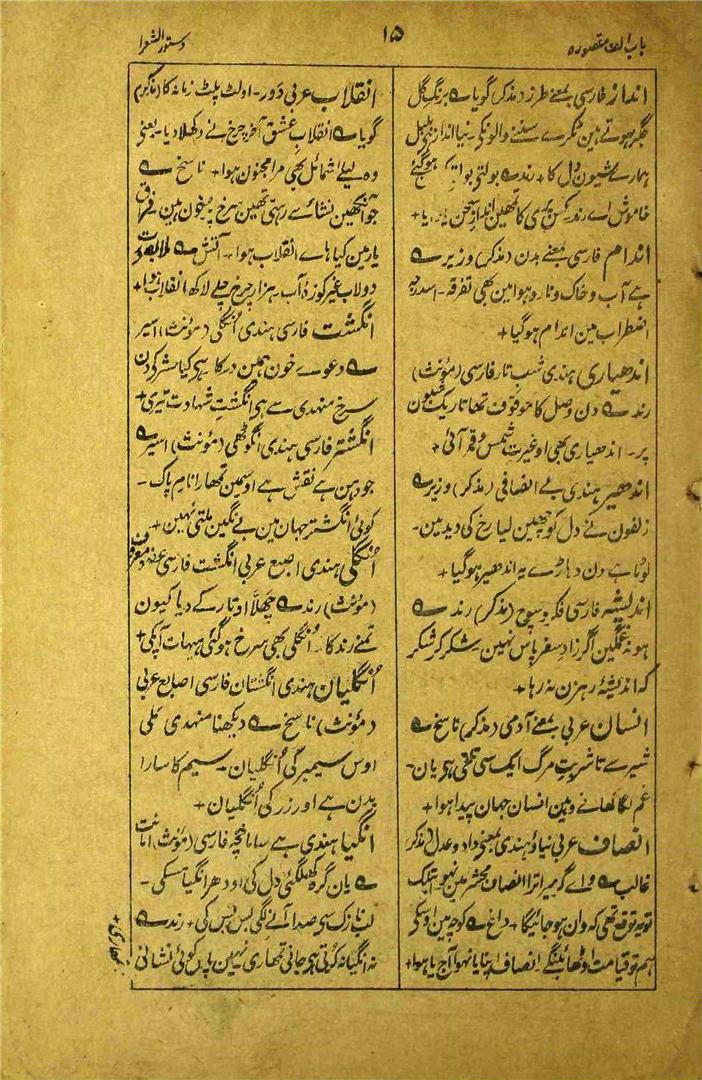 باب الف مقصورہ
۱۵
دستور الشعرا
انداز فارسی بمعنے طرز (مذکر) گویا ؎ برنگ گل
جگر ہوتے ہین ٹکڑے سننے والونکی۔ نیا انداز ہی بلبل
ہمارے شیون دل کا + رند ؎ بولتی بولتے ہوگئے
خاموش اے رند کس پری کا تمھین انداز سخن یاد آیا +
اندام فارسی بمعنے بدن (مذکر) وزیر ؎
ہے آب و خاک و نار و ہوا مین بھی تفرقہ۔ اسدرجہ
اضطراب مین اندام ہو گیا +
اندھیاری ہندی شب تار فارسی (مؤنث)
رند ؎ دن وصل کا موقوف تھا تاریک شبون
پر۔ اندھیاری بھی او غیرت شمس و قمر آئی +
اندھیر ہندی بے انصافی (مذکر) وزیر ؎
زلفون نے دل کو چھین لیا رخ کی دید مین۔
لوٹا ہے دن دہاڑے یہ اندھیر ہو گیا +
اندیشہ فارسی فکر و سوچ (مذکر) رند ؎
ہو نہ غمگین اگر زاد سفر پاس نہین شکر کر شکر
کہ اندیشۂ رہزن نہ رہا +
انسان عربی بمعنے آدمی (مذکر) ناسخ ؎
شیر سے تا شربت مرگ ایک سی تلخی ہی یان۔
غم لگا کھانے وہین انسان جہان پیدا ہوا +
انصاف عربی نیاؤ ہندی بمعنی داد و عدل (مذکر)
غالب ؎ واے گر میرا ترا انصاف محشر مین نہو اب تلک
تو یہ توقع تھی کہ وان ہو جائیگا + داغ ؎ کوچہ مین اوسکی
ہم تو قیامت اوٹھائینگے انصاف اپنا یا نہوا آج یا ہوا +
انقلاب عربی دَور۔ اولٹ پلٹ زمانہ کا (مذکر)
گویا ؎ انقلاب عشق آخر چرخ نے دکھلا دیا۔ یعنی
وہ لیلے شمائل بھی مرا مجنون ہوا + ناسخ ؎
جو آنکھین نشا سے رہتی تھین سرخ پرخون ہین فراق
یار مین کیا ہاے انقلاب ہوا۔ آتش ؎
دولاب غیر کوزۂ آب ہزار چرخ چلے لاکھ انقلاب ہوا +
انگشت فارسی ہندی اُنگلی (مؤنث) اسیر
؎ دعوے خون ہمین درکار ہی کیا بسر گردن
سرخ منہدی سے ہی انگشت شہادت تیری +
انگشتر فارسی ہندی انگوٹھی (مؤنث) اسیر ؎
جو دہن ہے نقش ہے اوسمین تمھارا نام پاک۔
کوئی انگشتر جہان مین بے نگین ملتی نہین +
اُنگلی ہندی اصبع عربی انگشت فارسی عضو معروف
(مؤنث) رند ؎ چھلّا اوتار کے دیا کیون
تمنے رند کا۔ اُنگلی بھی سرخ ہوگئی ہیہات آپکی +
اُنگلیان ہندی انگشتان فارسی اصابع عربی
(مؤنث) ناسخ ؎ دیکھنا منہدی ملی
اوس سیمبر کی اُنگلیان۔ سیم کا سارا
بدن ہے اور زر کی اُنگلیان +
انگیا ہندی ہے ساماخچہ فارسی (مؤنث) امانت
؎ یان گرہ کھلگئی دل کی اودھر انگیا مسکی۔
لب نازک سی صدا آنے لگی بس بس کی + رند ؎
نہ انگیا نہ کرتی ہی جانی تمھاری نہین پاس کوئی نشانی